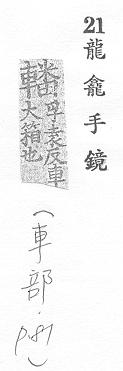 21龍龕手鏡
轓孚袁反車
大箱也
(車部·p.81)